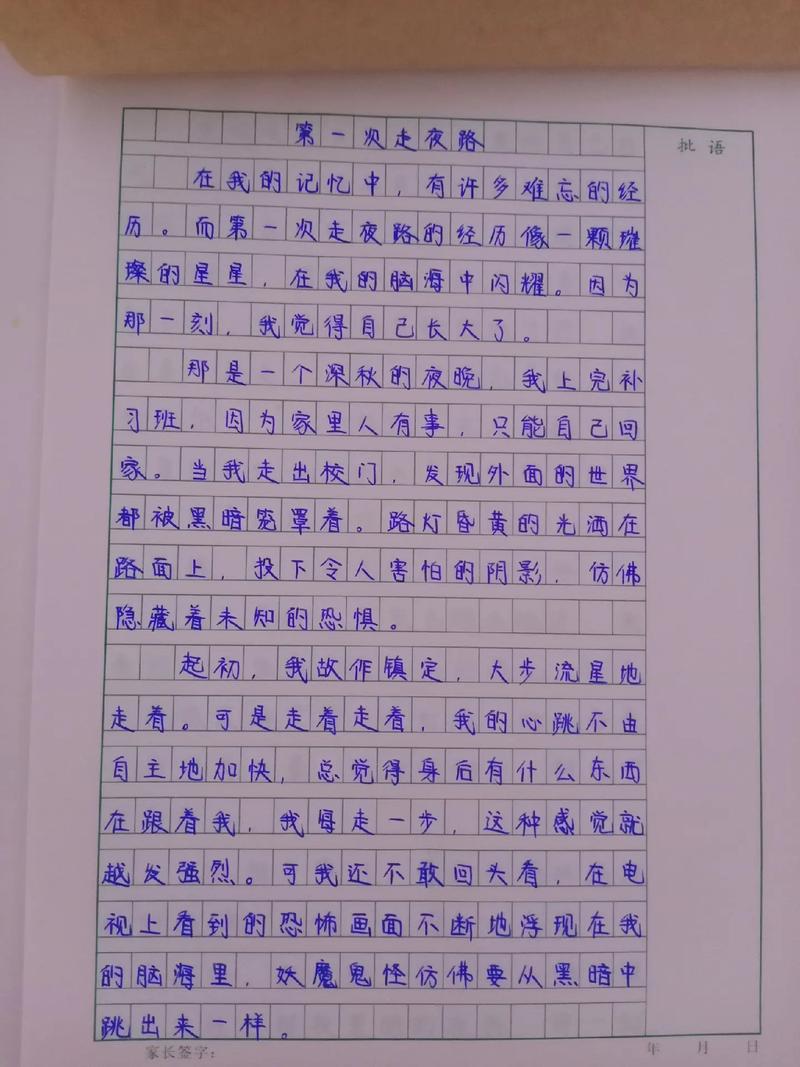 第一次走夜路
批语
在我的记忆中，有许多难忘的经
历。而第一次走夜路的经历像一颗璀
璨的星星，在我的脑海中闪耀。因为
那一刻，我觉得自己长大了。
那是一个深秋的夜晚，我上完补
习班，因为家里人有事，只能自己回
家。当我走出校门，发现外面的世界
都被黑暗笼罩着。路灯昏黄的光洒在
路面上，投下令人害怕的阴影，仿佛
隐藏着未知的恐惧。
起初，我故作镇定，大步流星地
走着。可是走着走着，我的心跳不由
自主地加快，总觉得身后有什么东西
在跟着我，我每走一步，这种感觉就
越发强烈。可我还不敢回头看，在电
视上看到的恐怖画面不断地浮现在我
的脑海里，妖魔鬼怪仿佛要从黑暗中
跳出来一样。
家长签字：
年 月 日